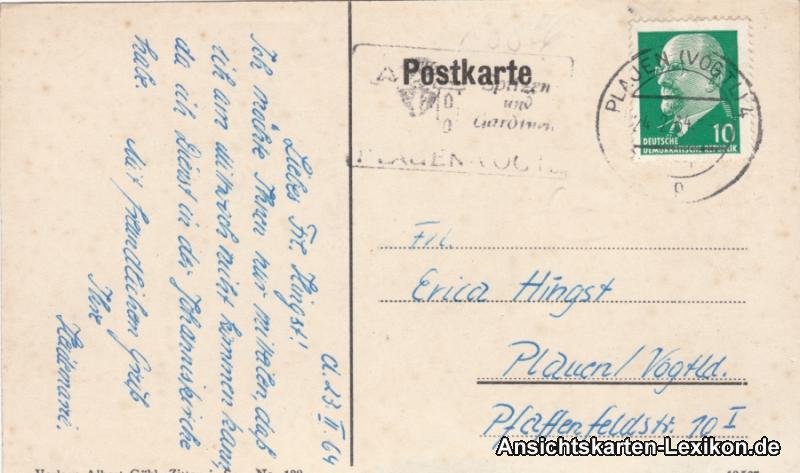 d. 23. II 64
Liebes Frl. Hingst!
Ich möchte Ihnen nur mitteilen, daß
ich am Mittwoch nicht kommen kann,
da ich Dienst in der Johanniskirche
habe.
Mit freundlichem Gruß
Ihre
Postkarte
Spitzen
und
Gardinen
PLAUEN VOGTL
PLAUEN (VOGTL) 2
10
DEUTSCHE
DEMOKRATISCHE REPUBLIK
Frl.
Erica Hingst
Plauen/Vogtld.
Pfaffenfeldstr. 10 I
Ansichtskarten-Lexikon.de